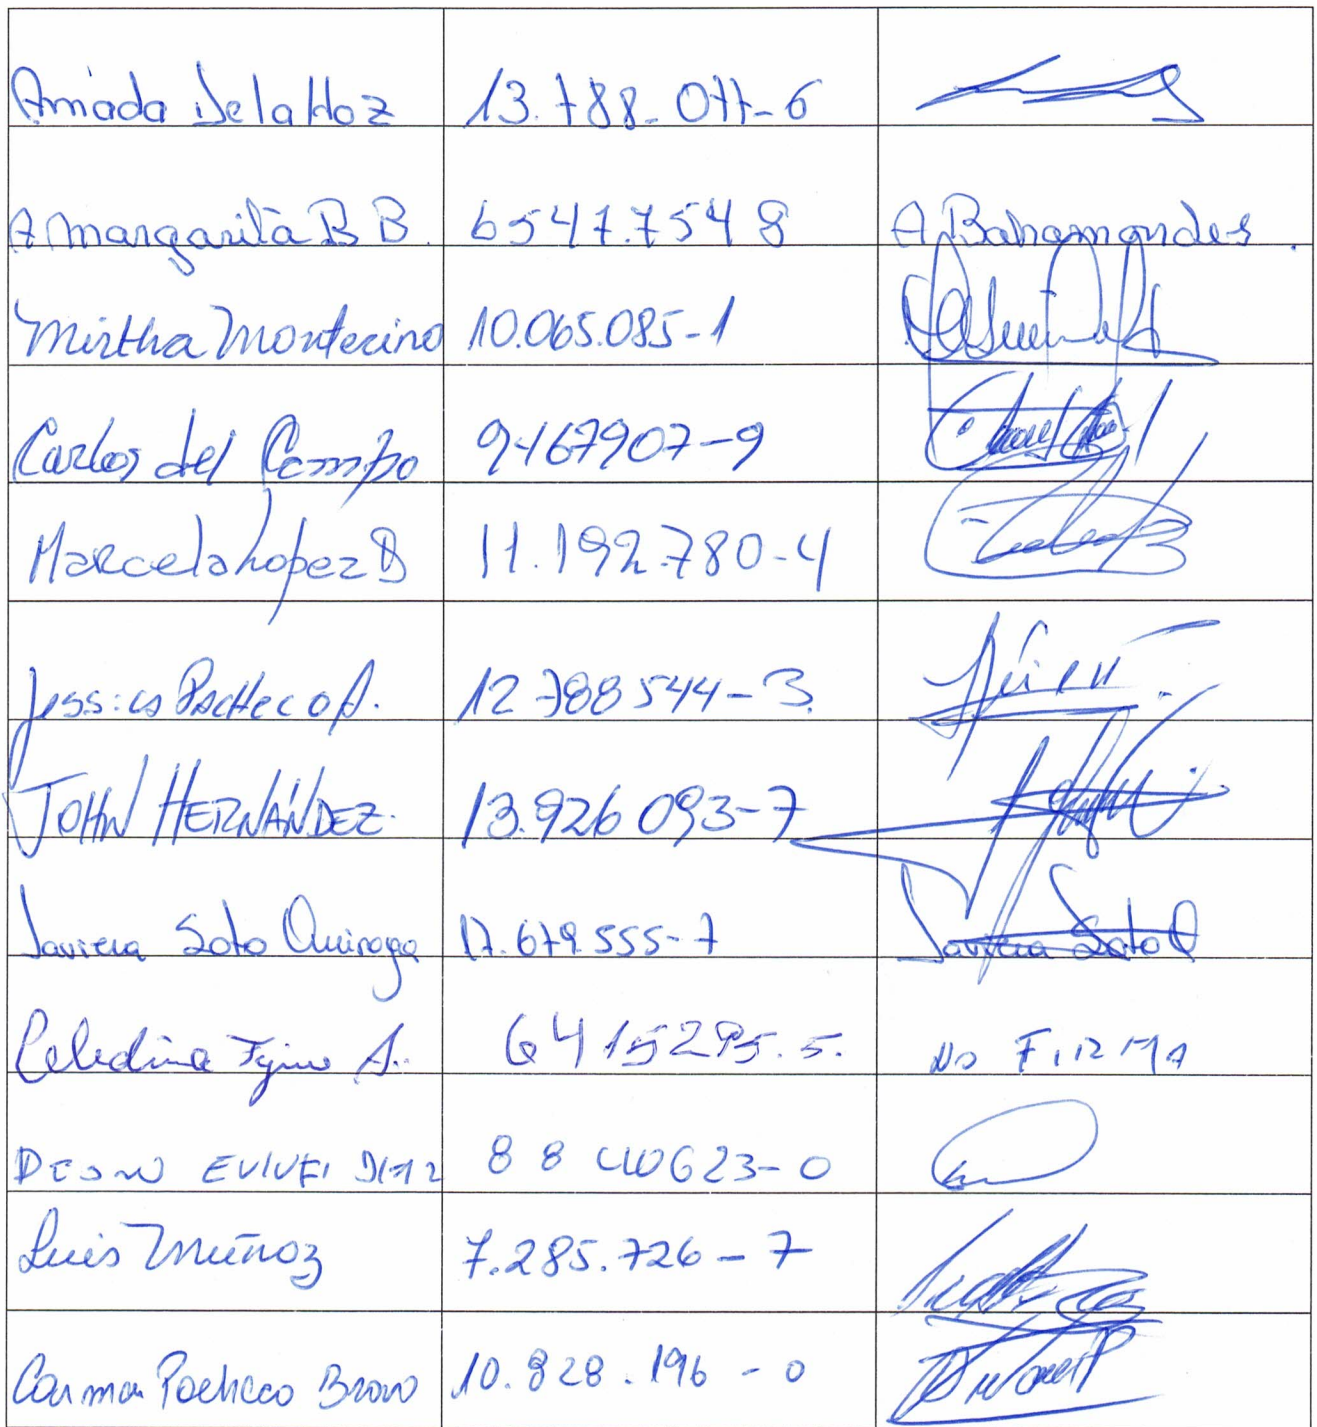 Amada DelaHoz 13.788-077-6
A margarita B B. 6547.754 8 A Bahamondes.
Mirtha Montecino 10.065.085-1
Carlos del Campo 9167907-9
Marcela Lopez B 11.192.780-4
Jessica Pacheco A. 12 788544-3.
JOHN HERNÁNDEZ. 13.926 093-7
Javiera Soto Quiroga 17.679.555-7 Javiera Soto Q
Celedina A. 6415295.5. No FIRMA
8 8
Luis Muñoz 7.285.726-7
Carmen Pacheco Bravo 10.828.196-0